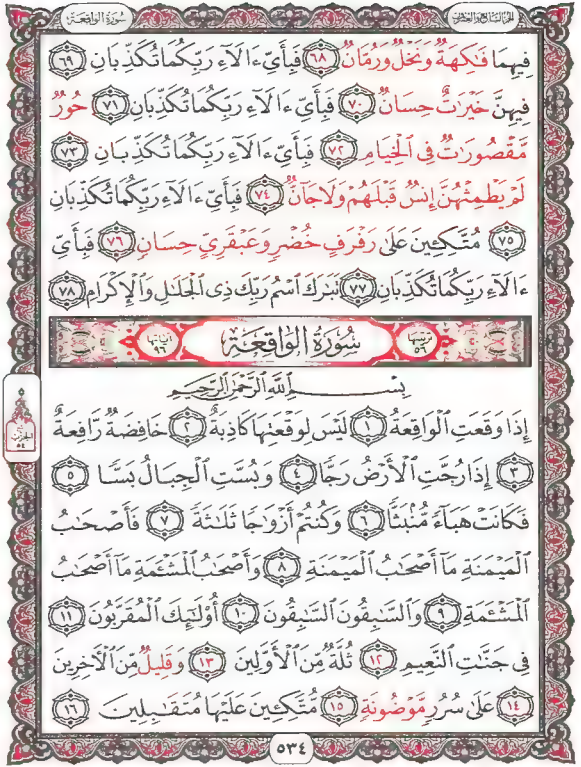 سُورَةُ الوَاقِعَة الجُزءُ السَّابِعُ وَالعِشْرُونَ
فِيهِمَا فَٰكِهَةٌ وَنَخْلٌ وَرُمَّانٌ ٦٨ فَبِأَيِّ ءَالَآءِ رَبِّكُمَا تُكَذِّبَانِ ٦٩
فِيهِنَّ خَيْرَٰتٌ حِسَانٌ ٧٠ فَبِأَيِّ ءَالَآءِ رَبِّكُمَا تُكَذِّبَانِ ٧١ حُورٌ
مَّقْصُورَٰتٌ فِى ٱلْخِيَامِ ٧٢ فَبِأَيِّ ءَالَآءِ رَبِّكُمَا تُكَذِّبَانِ ٧٣
لَمْ يَطْمِثْهُنَّ إِنسٌ قَبْلَهُمْ وَلَا جَآنٌّ ٧٤ فَبِأَيِّ ءَالَآءِ رَبِّكُمَا تُكَذِّبَانِ
٧٥ مُتَّكِـِٔينَ عَلَىٰ رَفْرَفٍ خُضْرٍ وَعَبْقَرِىٍّ حِسَانٍ ٧٦ فَبِأَيِّ
ءَالَآءِ رَبِّكُمَا تُكَذِّبَانِ ٧٧ تَبَٰرَكَ ٱسْمُ رَبِّكَ ذِى ٱلْجَلَٰلِ وَٱلْإِكْرَامِ ٧٨
ترتيبها ٥٦ سُورَةُ الْوَاقِعَةِ آياتها ٩٦
بِسْمِ ٱللَّهِ ٱلرَّحْمَٰنِ ٱلرَّحِيمِ
إِذَا وَقَعَتِ ٱلْوَاقِعَةُ ١ لَيْسَ لِوَقْعَتِهَا كَاذِبَةٌ ٢ خَافِضَةٌ رَّافِعَةٌ
٣ إِذَا رُجَّتِ ٱلْأَرْضُ رَجًّا ٤ وَبُسَّتِ ٱلْجِبَالُ بَسًّا ٥
فَكَانَتْ هَبَآءً مُّنۢبَثًّا ٦ وَكُنتُمْ أَزْوَٰجًا ثَلَٰثَةً ٧ فَأَصْحَٰبُ
ٱلْمَيْمَنَةِ مَآ أَصْحَٰبُ ٱلْمَيْمَنَةِ ٨ وَأَصْحَٰبُ ٱلْمَشْـَٔمَةِ مَآ أَصْحَٰبُ
ٱلْمَشْـَٔمَةِ ٩ وَٱلسَّٰبِقُونَ ٱلسَّٰبِقُونَ ١٠ أُو۟لَٰٓئِكَ ٱلْمُقَرَّبُونَ ١١
فِى جَنَّٰتِ ٱلنَّعِيمِ ١٢ ثُلَّةٌ مِّنَ ٱلْأَوَّلِينَ ١٣ وَقَلِيلٌ مِّنَ ٱلْءَاخِرِينَ
١٤ عَلَىٰ سُرُرٍ مَّوْضُونَةٍ ١٥ مُّتَّكِـِٔينَ عَلَيْهَا مُتَقَٰبِلِينَ ١٦
الحزب
٥٤
٥٣٤